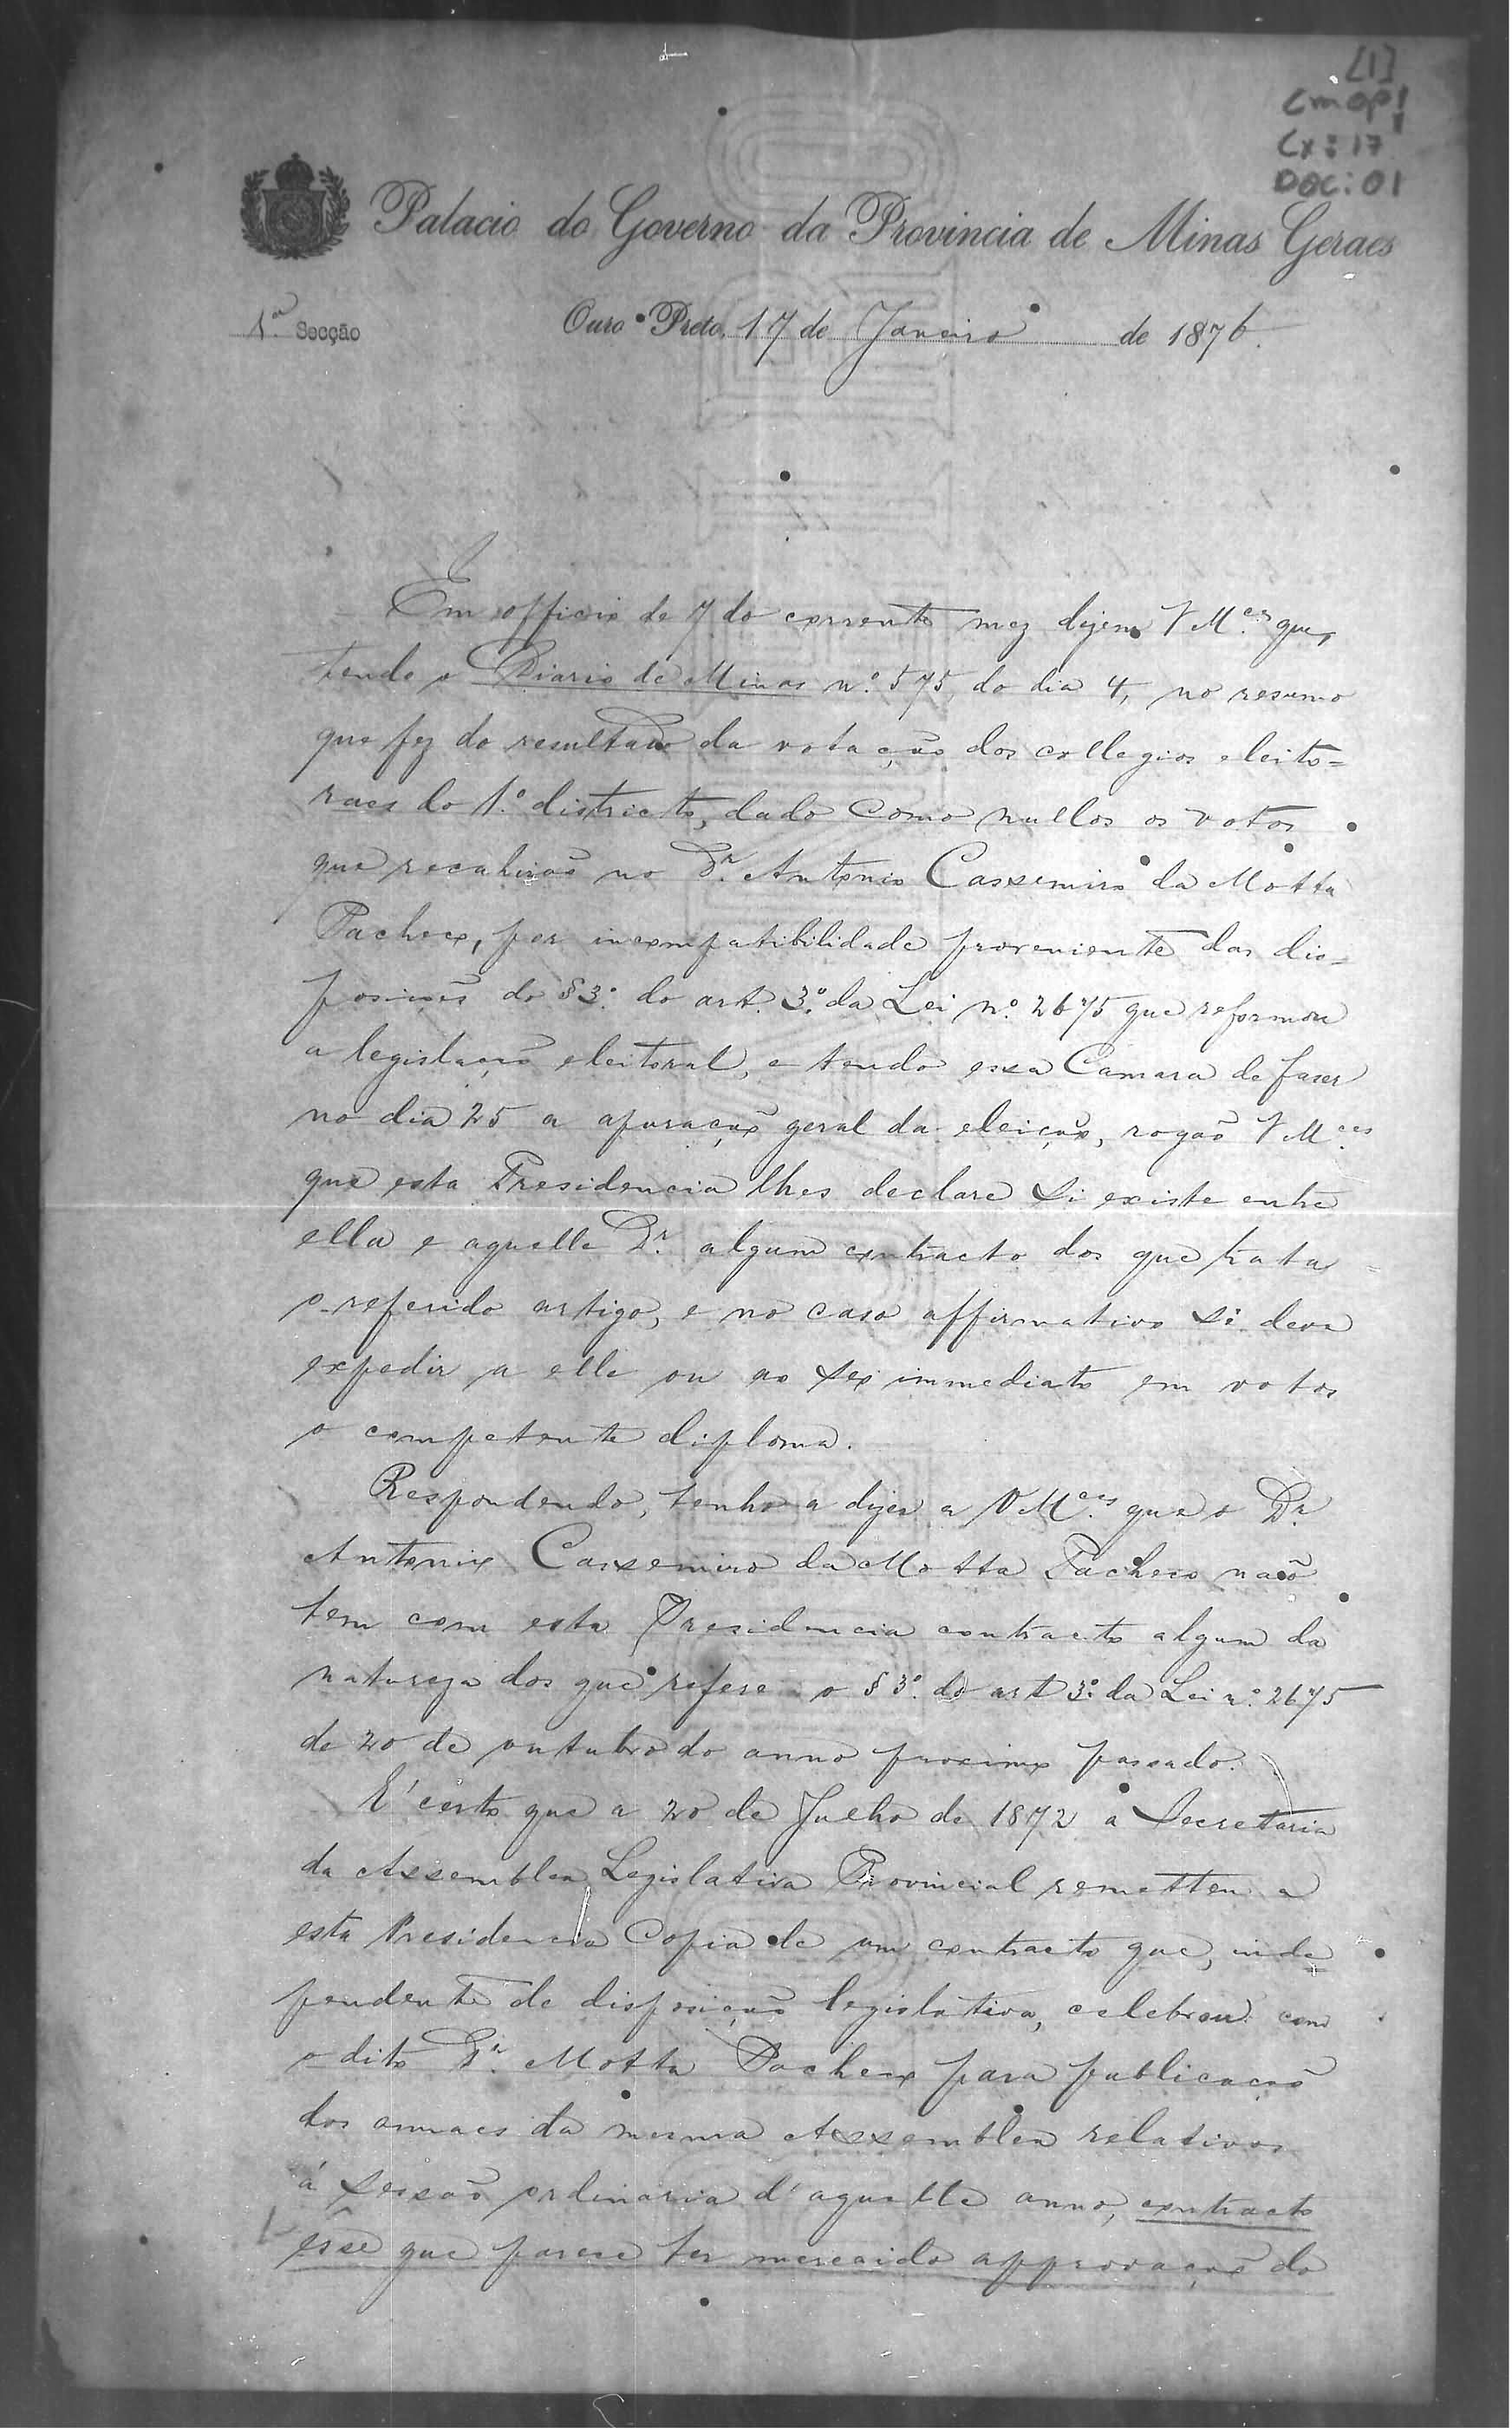 [1]
CMOP
Cx: 17
DOC: 01
Palacio do Governo da Provincia de Minas Geraes
1.ª Secção Ouro Preto, 17 de Janeiro de 1876.
Em officio de 7 do corrente mez dizem V M.ces que,
tendo o Diario de Minas n.º 575, do dia 4, no resumo
que fez do resultado da votação dos collegios eleito=
raes do 1.º districto, dado como nullos os votos
que recahirão no Dr. Antonio Cassemiro da Motta
Pacheco, por incompatibilidade proveniente das dis=
posições do § 3.º do art. 3.º da Lei n.º 2675 que reformou
a legislação eleitoral, e tendo essa Camara de faser
no dia 25 a apuração geral da eleição, rogão V M.ces
que esta Presidencia lhes declare si existe entre
ella e aquelle Dr. algum contracto dos que trata
o referido artigo, e no caso affirmativo si deve
expedir a elle ou ao seo immediato em votos
o competente diploma.
Respondendo, tenho a dizer a V M.ces que o Dr.
Antonio Cassemiro da Motta Pacheco não
tem com esta Presidencia contracto algum da
natureza dos que refere o § 3.º do art 3.º da Lei n.º 2675
de 20 de outubro do anno proximo passado.
E' certo que a 20 de Julho de 1872 a Secretaria
da Assemblea Legislativa Provincial remetteu a
esta Presidencia Copia de um contracto que, inde
pendente de disposição legislativa, celebrou com
o dito Dr. Motta Pacheco para publicação
dos annaes da mesma Assemblea relativos
á sessão ordinaria d'aquelle anno, contracto
esse que parece ter merecido approvação da